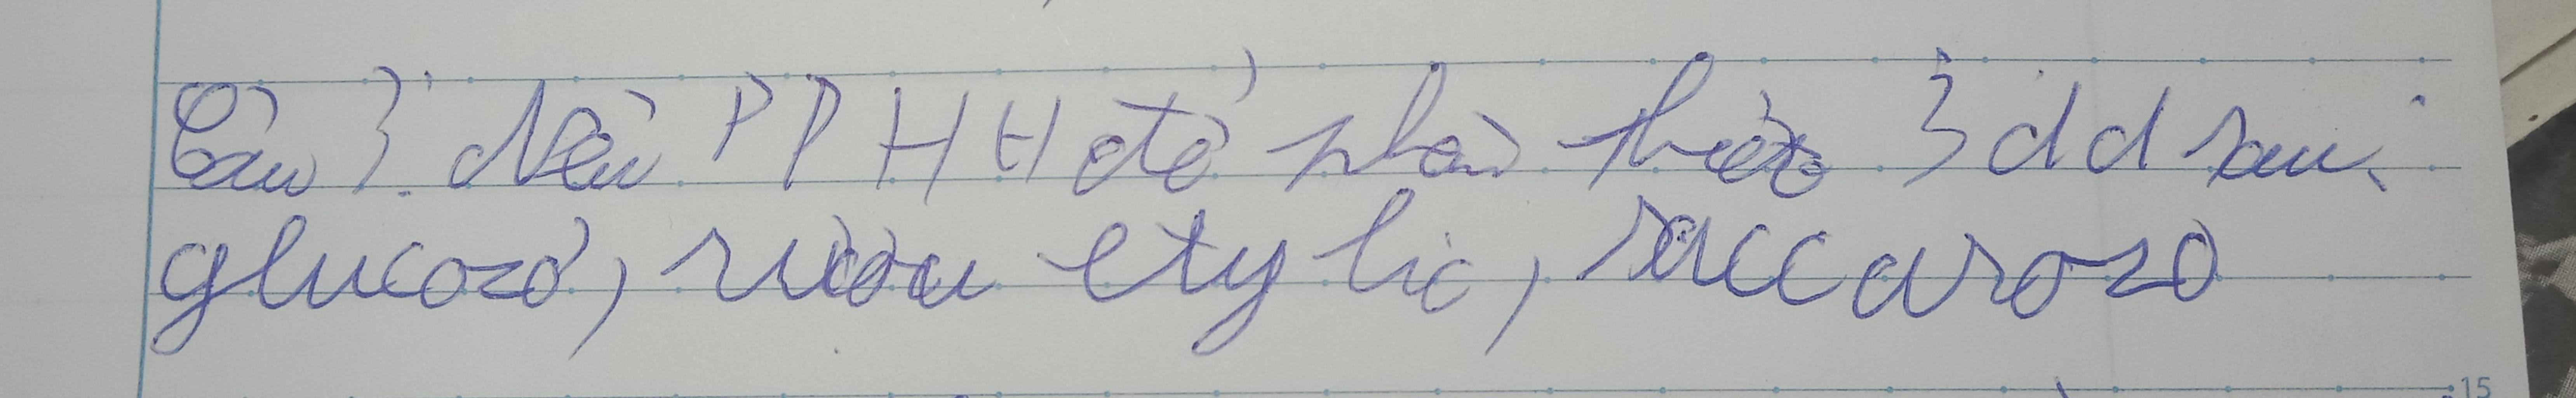 Câu 3: Nêu PPHH để phân biệt 3 dd sau:
glucozơ, rượu etylic, saccarozo
15